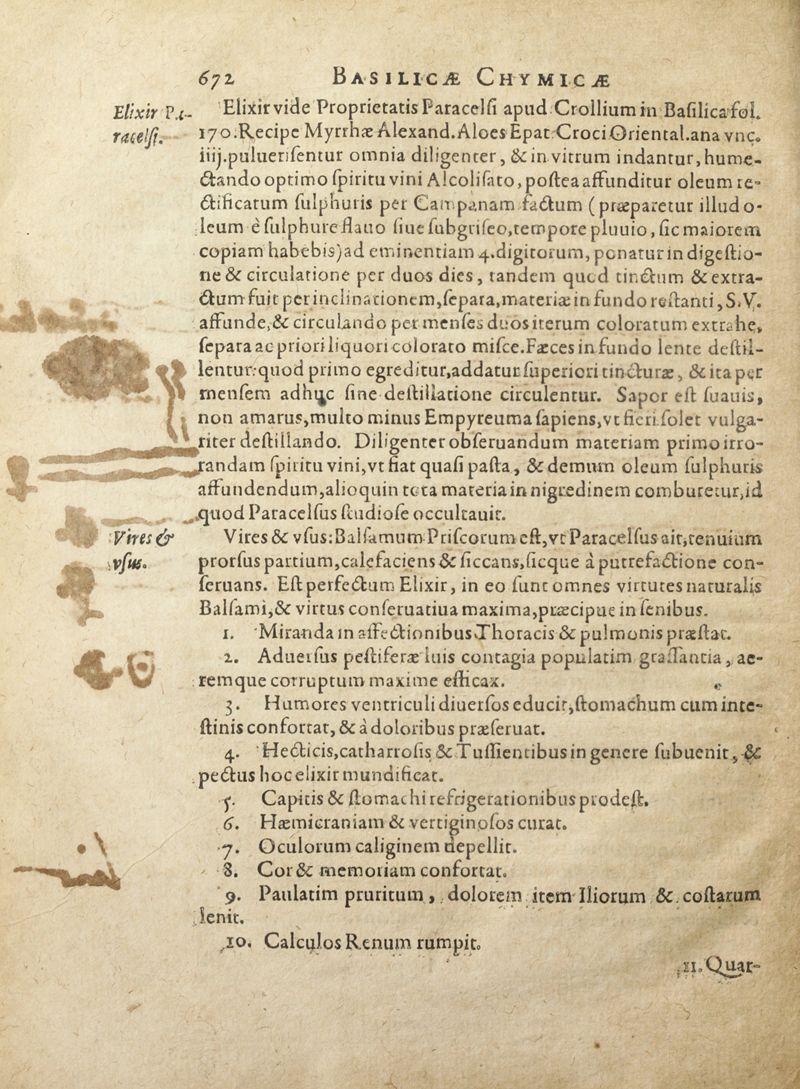 672 BASILICÆ CHYMICÆ
Elixir Pa-
racelſi.
Elixir vide Proprietatis Paracelſi apud Crollium in Baſilica fol.
170. Recipe Myrrhæ Alexand. Aloes Epat Croci Oriental. ana vnc.
iiij. puluerifentur omnia diligenter, & in vitrum indantur, hume-
ctando optimo ſpiritu vini Alcoliſato, poſtea affunditur oleum re-
ctificatum ſulphuris per Campanam factum (præparetur illud o-
leum è ſulphure flauo ſiue ſubgriſeo, tempore pluuio, ſic maiorem
copiam habebis) ad eminentiam 4. digitorum, ponatur in digeſtio-
ne & circulatione per duos dies, tandem quod tinctum & extra-
ctum fuit per inclinationem, ſepara, materiæ in fundo reſtanti, S. V.
affunde, & circulando per menſes duos iterum coloratum extrahe,
ſepara ac priori liquori colorato miſce. Fæces in fundo lente deſtil-
lentur: quod primo egreditur, addatur ſuperiori tincturæ, & ita per
menſem adhuc ſine deſtillatione circulentur. Sapor eſt ſuauis,
non amarus, multo minus Empyreuma ſapiens, vt fieri ſolet vulga-
riter deſtillando. Diligenter obſeruandum materiam primo irro-
randam ſpiritu vini, vt fiat quaſi paſta, & demum oleum ſulphuris
affundendum, alioquin tota materia in nigredinem combureretur, id
quod Paracelſus ſtudioſe occultauit.
Vires &
vſus.
Vires & vſus: Balſamum Priſcorum eſt, vt Paracelſus ait, tenuium
prorſus partium, calefaciens & ſiccans, ſicque à putrefactione con-
ſeruans. Eſt perfectum Elixir, in eo ſunt omnes virtutes naturalis
Balſami, & virtus conſeruatiua maxima, præcipue in ſenibus.
1. Miranda in affectionibus Thoracis & pulmonis præſtat.
2. Aduerſus peſtiferæ luis contagia populatim graſſantia, ae-
remque corruptum maxime efficax.
3. Humores ventriculi diuerſos educit, ſtomachum cum inte-
ſtinis confortat, & à doloribus præſeruat.
4. Hecticis, catharroſis & Tuſſientibus in genere ſubuenit, &
pectus hoc elixir mundificat.
5. Capitis & ſtomachi refrigerationibus prodeſt.
6. Hæmicraniam & vertiginoſos curat.
7. Oculorum caliginem depellit.
8. Cor & memoriam confortat.
9. Paulatim pruritum, dolorem item Iliorum & coſtarum
lenit.
10. Calculos Renum rumpit.
11. Quar-